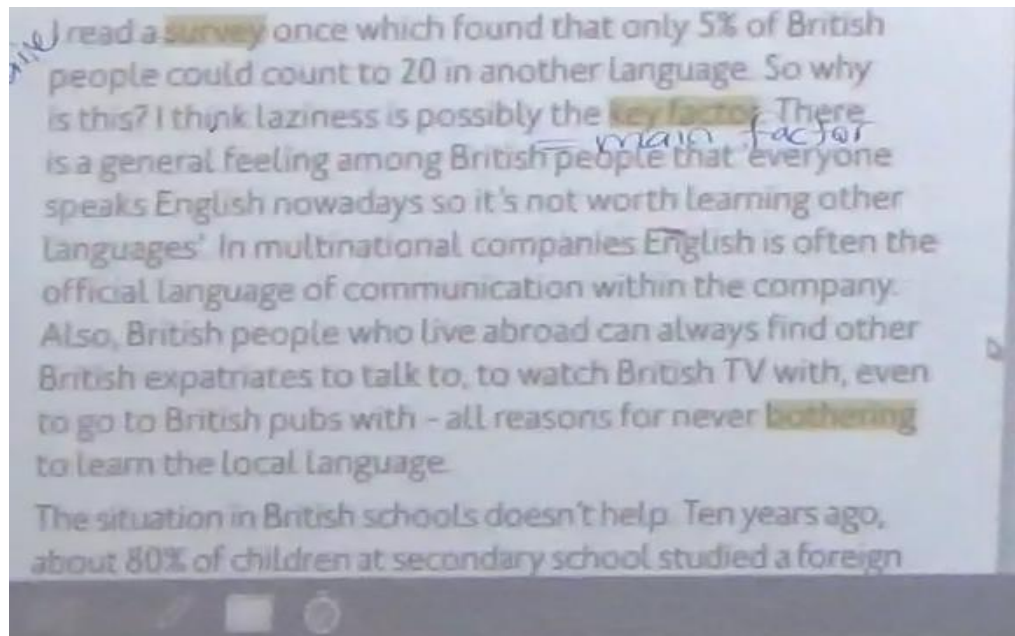 I read a survey once which found that only 5% of British
people could count to 20 in another language. So why
is this? I think laziness is possibly the key factor. There
= main factor
is a general feeling among British people that 'everyone
speaks English nowadays so it's not worth learning other
languages'. In multinational companies English is often the
official language of communication within the company.
Also, British people who live abroad can always find other
British expatriates to talk to, to watch British TV with, even
to go to British pubs with – all reasons for never bothering
to learn the local language.
The situation in British schools doesn't help. Ten years ago,
about 80% of children at secondary school studied a foreign